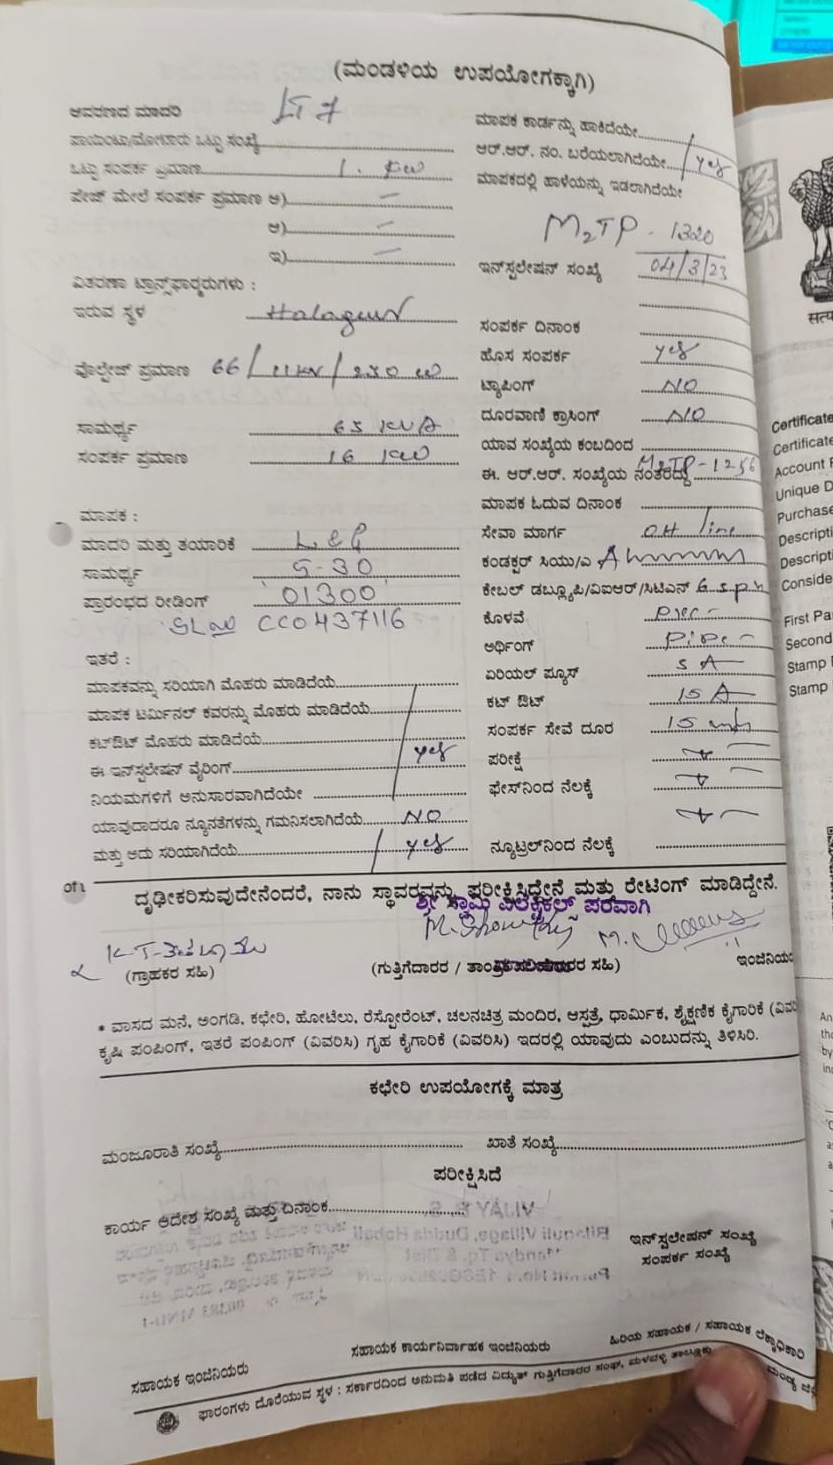 (ಮಂಡಳಿಯ ಉಪಯೋಗಕ್ಕಾಗಿ)
ಆವರಣದ ಮಾದರಿ LT 7
ಪಾಯಿಂಟು/ಮೋಟಾರು ಒಟ್ಟು ಸಂಖ್ಯೆ
ಒಟ್ಟು ಸಂಪರ್ಕ ಪ್ರಮಾಣ 1. KW
ಪೇಜ್ ಮೇಲೆ ಸಂಪರ್ಕ ಪ್ರಮಾಣ ಅ) —
ಆ) —
ಇ) —
ವಿತರಣಾ ಟ್ರಾನ್ಸ್‌ಫಾರ್‍ಮರುಗಳು :
ಇರುವ ಸ್ಥಳ Halagur
ವೋಲ್ಟೇಜ್ ಪ್ರಮಾಣ 66/11KV/230
ಸಾಮರ್ಥ್ಯ 63 KVA
ಸಂಪರ್ಕ ಪ್ರಮಾಣ 16 KW
ಮಾಪಕ :
ಮಾದರಿ ಮತ್ತು ತಯಾರಿಕೆ L & G
ಸಾಮರ್ಥ್ಯ 5-30
ಪ್ರಾರಂಭದ ರೀಡಿಂಗ್ 01300
SL No CC0437116
ಇತರೆ :
ಮಾಪಕವನ್ನು ಸರಿಯಾಗಿ ಮೊಹರು ಮಾಡಿದೆಯೆ
ಮಾಪಕ ಟರ್ಮಿನಲ್ ಕವರನ್ನು ಮೊಹರು ಮಾಡಿದೆಯೆ
ಕಟ್‌ಔಟ್ ಮೊಹರು ಮಾಡಿದೆಯೆ
ಈ ಇನ್‌ಸ್ಟಲೇಷನ್ ವೈರಿಂಗ್ yes
ನಿಯಮಗಳಿಗೆ ಅನುಸಾರವಾಗಿದೆಯೇ
ಯಾವುದಾದರೂ ನ್ಯೂನತೆಗಳನ್ನು ಗಮನಿಸಲಾಗಿದೆಯೆ NO
ಮತ್ತು ಅದು ಸರಿಯಾಗಿದೆಯೆ yes
ಮಾಪಕ ಕಾರ್ಡನ್ನು ಹಾಕಿದೆಯೇ
ಆರ್.ಆರ್. ನಂ. ಬರೆಯಲಾಗಿದೆಯೇ yes
ಮಾಪಕದಲ್ಲಿ ಹಾಳೆಯನ್ನು ಇಡಲಾಗಿದೆಯೇ
M2TP - 1320
ಇನ್‌ಸ್ಟಲೇಷನ್ ಸಂಖ್ಯೆ 04/3/23
ಸಂಪರ್ಕ ದಿನಾಂಕ
ಹೊಸ ಸಂಪರ್ಕ yes
ಟ್ಯಾಪಿಂಗ್ NO
ದೂರವಾಣಿ ಕ್ರಾಸಿಂಗ್ NO
ಯಾವ ಸಂಖ್ಯೆಯ ಕಂಬದಿಂದ
ಈ. ಆರ್.ಆರ್. ಸಂಖ್ಯೆಯ ನಂತರದ್ದು M2TP-1256
ಮಾಪಕ ಓದುವ ದಿನಾಂಕ
ಸೇವಾ ಮಾರ್ಗ OH line
ಕಂಡಕ್ಟರ್ ಸಿಯು/ಎ
ಕೇಬಲ್ ಡಬ್ಲ್ಯೂಪಿ/ವಿಐಆರ್/ಸಿಟಿಎಸ್
ಕೊಳವೆ
ಅರ್ಥಿಂಗ್ Pipe
ಏರಿಯಲ್ ಫ್ಯೂಸ್ 5 A
ಕಟ್ ಔಟ್ 15 A
ಸಂಪರ್ಕ ಸೇವೆ ದೂರ 15 mts
ಪರೀಕ್ಷೆ
ಫೇಸ್‌ನಿಂದ ನೆಲಕ್ಕೆ
ನ್ಯೂಟ್ರಲ್‌ನಿಂದ ನೆಲಕ್ಕೆ
of 1
ದೃಢೀಕರಿಸುವುದೇನೆಂದರೆ, ನಾನು ಸ್ಥಾವರವನ್ನು ಪರೀಕ್ಷಿಸಿದ್ದೇನೆ ಮತ್ತು ರೇಟಿಂಗ್ ಮಾಡಿದ್ದೇನೆ.
ಶ್ರೀ ಸ್ವಾಮಿ ಎಲೆಕ್ಟ್ರಿಕಲ್ಸ್ ಪರವಾಗಿ
(ಗ್ರಾಹಕರ ಸಹಿ)
(ಗುತ್ತಿಗೆದಾರರ / ತಾಂತ್ರಿಕ ಸಹಿ)
ಇಂಜಿನಿಯ
* ವಾಸದ ಮನೆ, ಅಂಗಡಿ, ಕಛೇರಿ, ಹೋಟೆಲು, ರೆಸ್ಟೋರೆಂಟ್, ಚಲನಚಿತ್ರ ಮಂದಿರ, ಆಸ್ಪತ್ರೆ, ಧಾರ್ಮಿಕ, ಶೈಕ್ಷಣಿಕ ಕೈಗಾರಿಕೆ (ವಿವರಿ
ಕೃಷಿ ಪಂಪಿಂಗ್, ಇತರೆ ಪಂಪಿಂಗ್ (ವಿವರಿಸಿ) ಗೃಹ ಕೈಗಾರಿಕೆ (ವಿವರಿಸಿ) ಇದರಲ್ಲಿ ಯಾವುದು ಎಂಬುದನ್ನು ತಿಳಿಸಿರಿ.
ಕಛೇರಿ ಉಪಯೋಗಕ್ಕೆ ಮಾತ್ರ
ಮಂಜೂರಾತಿ ಸಂಖ್ಯೆ ಖಾತೆ ಸಂಖ್ಯೆ
ಪರೀಕ್ಷಿಸಿದೆ
ಕಾರ್ಯ ಆದೇಶ ಸಂಖ್ಯೆ ಮತ್ತು ದಿನಾಂಕ
ಇನ್‌ಸ್ಟಲೇಷನ್ ಸಂಖ್ಯೆ
ಸಂಪರ್ಕ ಸಂಖ್ಯೆ
ಸಹಾಯಕ ಇಂಜಿನಿಯರು
ಸಹಾಯಕ ಕಾರ್ಯನಿರ್ವಾಹಕ ಇಂಜಿನಿಯರು
ಹಿರಿಯ ಸಹಾಯಕ / ಸಹಾಯಕ ಲೆಕ್ಕಾಧಿಕಾರಿ
ಫಾರಂಗಳು ದೊರೆಯುವ ಸ್ಥಳ : ಸರ್ಕಾರದಿಂದ ಅನುಮತಿ ಪಡೆದ ವಿದ್ಯುತ್ ಗುತ್ತಿಗೆದಾರರ ಸಂಘ, ಮಳವಳ್ಳಿ ತಾಲ್ಲೂಕು ಮಂಡ್ಯ ಜಿಲ್
सत्य
Certificate
Certificate
Account R
Unique D
Purchase
Descripti
Descripti
Conside
First Pa
Second
Stamp
Stamp